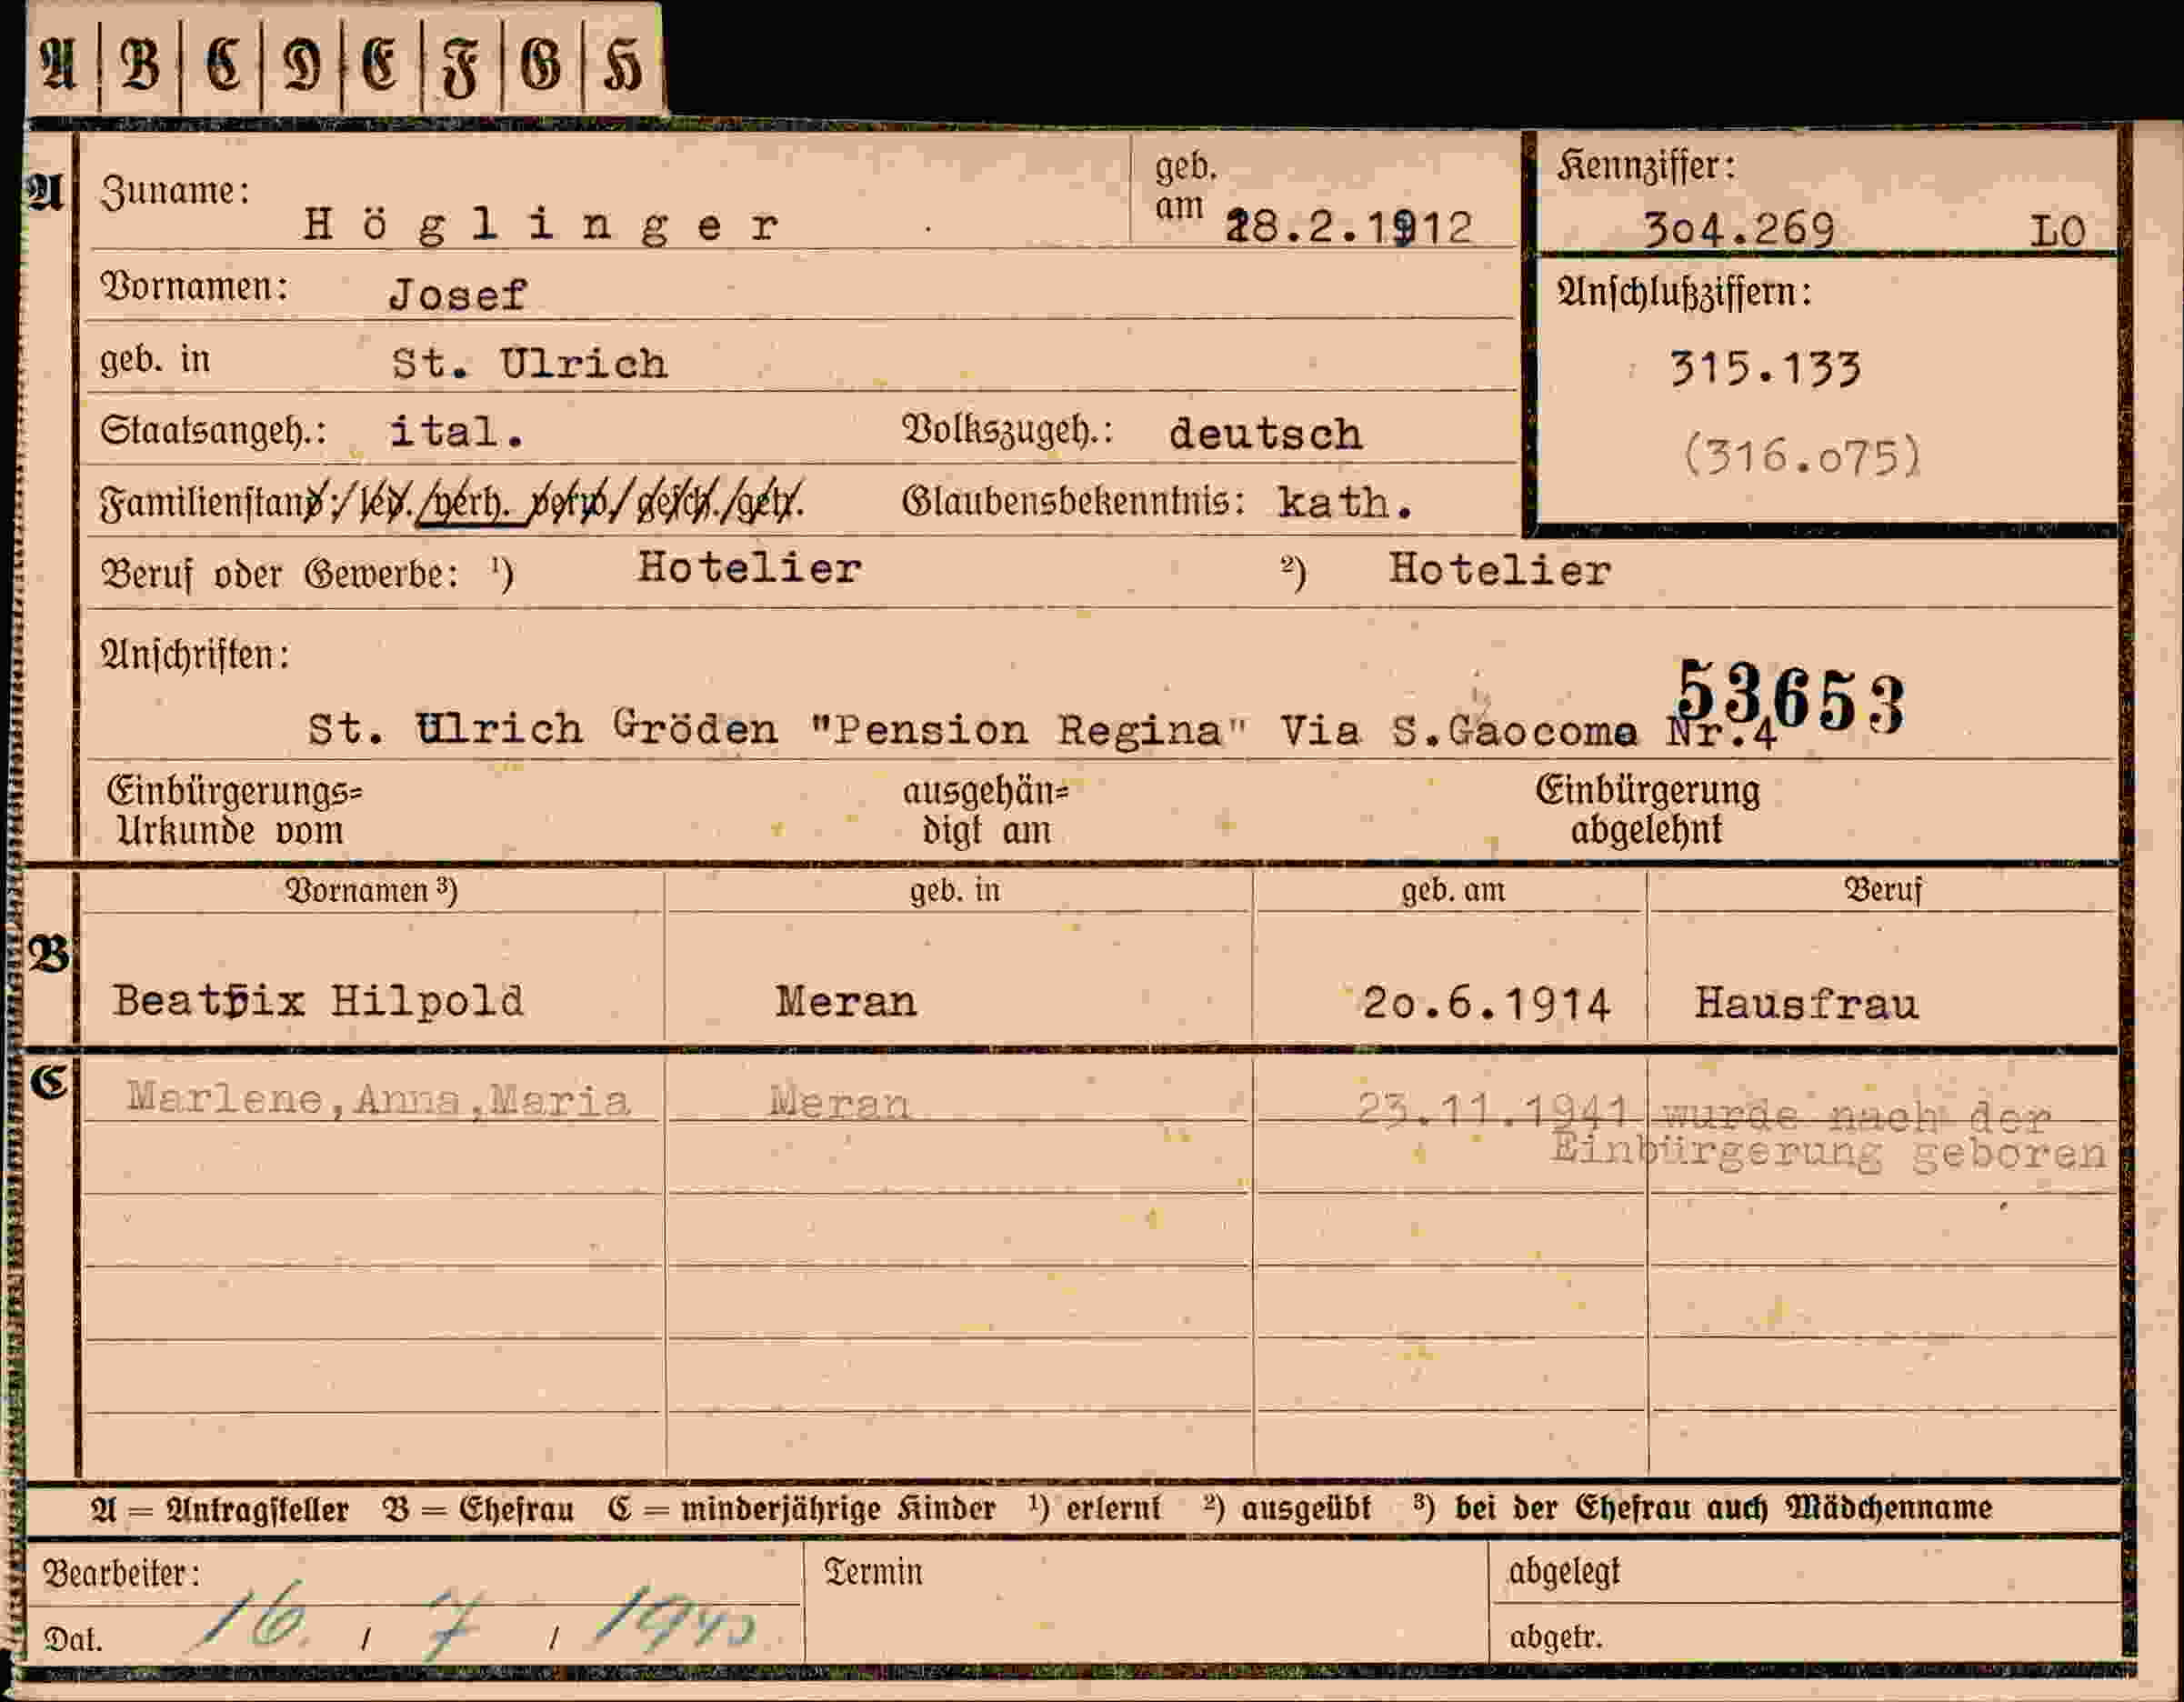 A B C D E F G H
A Zuname: Höglinger geb. am 28.2.1912 Kennziffer: 304.269 LO
Vornamen: Josef Anschlußziffern:
geb. in St. Ulrich 315.133
Staatsangeh.: ital. Volkszugeh.: deutsch (316.075)
Familienstand: / led. / verh. verw. / gesch. / getr. Glaubensbekenntnis: kath.
Beruf oder Gewerbe: ¹) Hotelier ²) Hotelier
Anschriften: 53653
St. Ulrich Gröden "Pension Regina" Via S.Gaocoma Nr.4
Einbürgerungs= ausgehän= Einbürgerung
Urkunde vom digt am abgelehnt
Vornamen ³) geb. in geb. am Beruf
B Beatrix Hilpold Meran 20.6.1914 Hausfrau
C Marlene,Anna,Maria Meran 23.11.1941 wurde nach der
Einbürgerung geboren
A = Antragsteller B = Ehefrau C = minderjährige Kinder ¹) erlernt ²) ausgeübt ³) bei der Ehefrau auch Mädchenname
Bearbeiter: Termin abgelegt
Dat. 16. / 7 / 1940 abgetr.